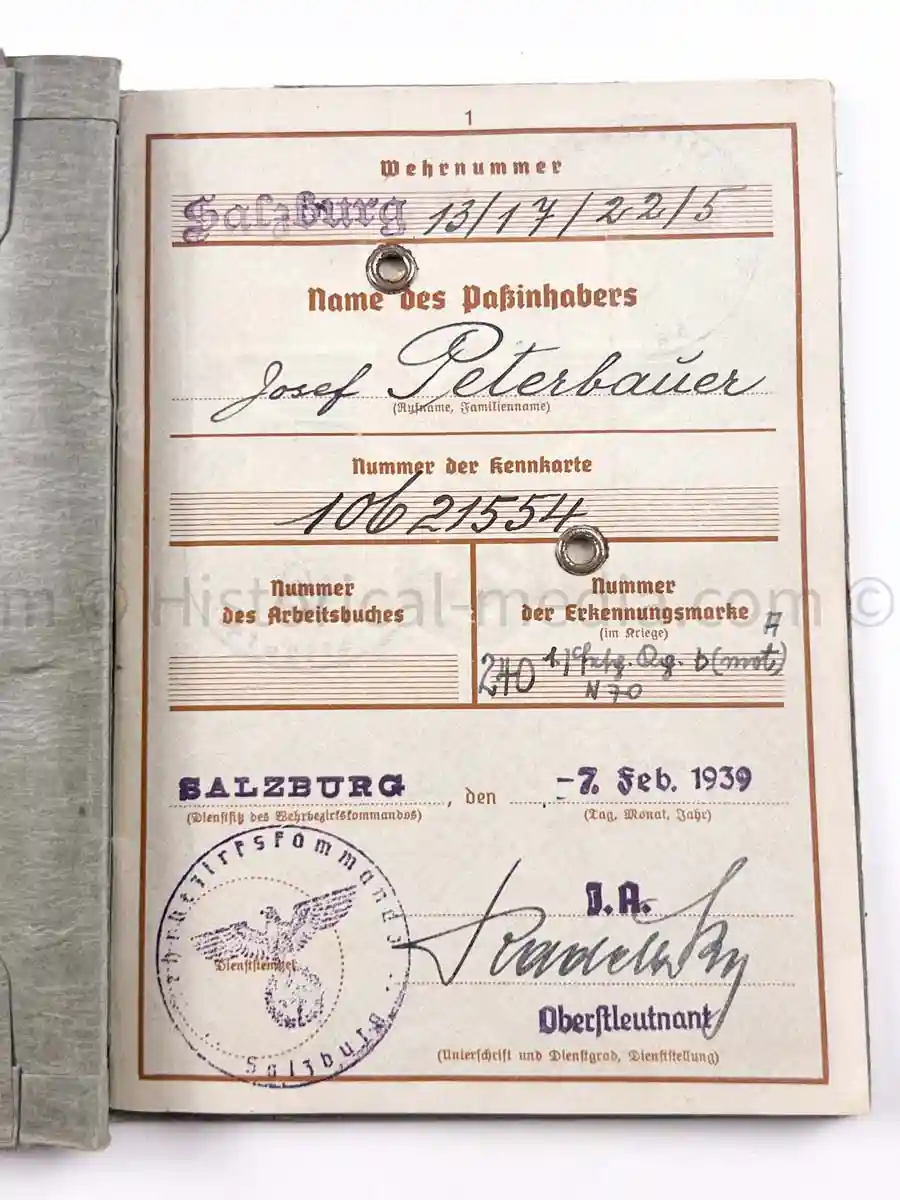 1
Wehrnummer
Salzburg 13/17/22/5
Name des Paßinhabers
Josef Peterbauer
(Rufname, Familienname)
Nummer der Kennkarte
10621554
Nummer des Arbeitsbuches
Nummer der Erkennungsmarke
(im Kriege)
A
240 b (mot)
N 70
© Historical-media.com ©
SALZBURG, den -7. Feb. 1939
(Dienstsitz des Wehrbezirkskommandos)
(Tag, Monat, Jahr)
Wehrbezirkskommando
Salzburg
Dienststempel
J.A.
Oberstleutnant
(Unterschrift und Dienstgrad, Dienststellung)